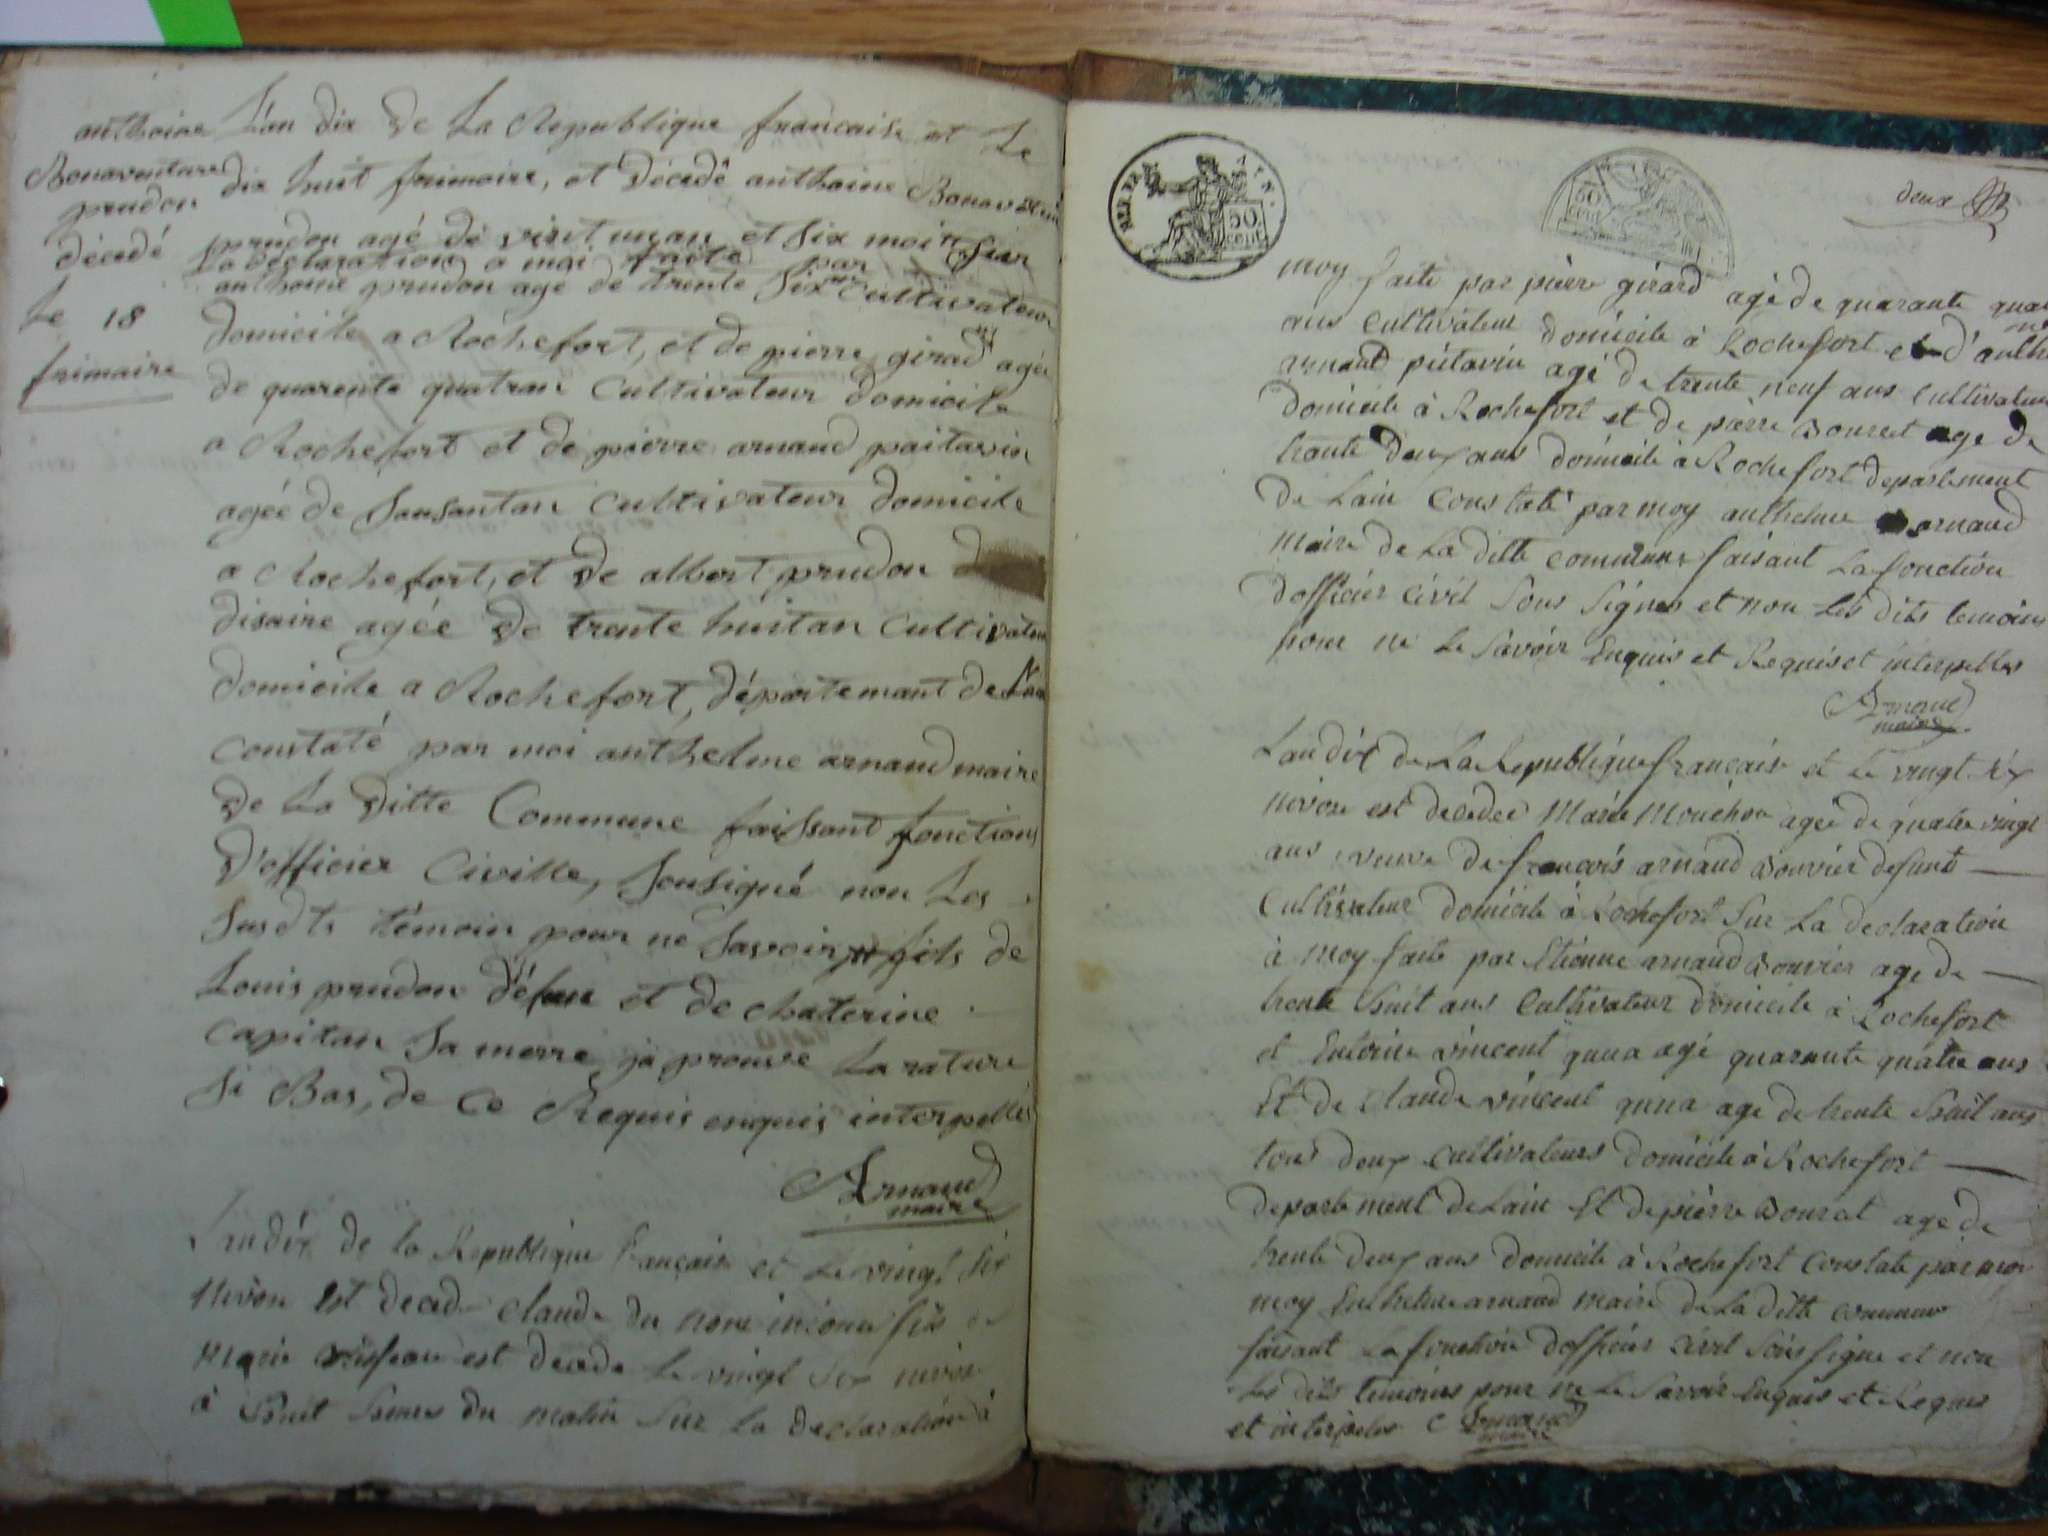 anthoine
Bonaventure
prudon
décédé
Le 18
frimaire
L'an dix de La Republique francaise et Le
dix huit frimaire, et décédé anthoine Bonaventure
prudon agé de vint unan et six moi sur
La déclaration a moi faite par
anthoine prudon age de trente six an cultivateur
domicile a Rochefort, et de pierre girard agée
de quarente quatran Cultivateur domicile
a Rochefort et de pierre arnaud paitavin
agée de sousantan Cultivateur domicile
a Rochefort, et de albert prudon
disaire agée de trente huitan Cultivateur
domicile a Rochefort, département de Lain
constaté par moi anthelme arnaud maire
de La ditte Commune faissant fonctions
d'officier Civille, sousigné non Les
susdts témoin pour ne savoir fils de
Louis prudon défun et de chaterine
capitan sa merre, japrouve La rature
si Bas, de Ce Requis enquis interpellés
Arnaud
maire
Landix de la Republique francaise et Le vingt six
Nivose Est decede claude du nom inconu fils de
est decede Le vingt six nivose
à huit heures du matin Sur La declaration à
REP. FRA. 50 cent
50 cent
deux
moy faite par pierre girard agé de quarante quatre
ans Cultivateur domicile à Rochefort et d'anthelme
arnaud péitavin agé de trente neuf ans Cultivateur
domicile à Rochefort et de pierre Bourret age de
trante deux ans domicile à Rochefort departement
de Lain Constaté par moy anthelme arnaud
maire de La ditte commune faisant La fonction
dofficier civil sous signes et non les dits temoins
pour ne le Savoir Enquis et Requis et interpelles
Arnaud
maire
Landix de La Republique francaise et Le vingt six
nivose est decedeé Marie Mouchon ageé de quatre vingt
ans veuve de francois arnaud Bouvier defunt
Cultivateur domicile à Rochefort Sur La declaration
à moy faite par Etienne arnaud Bouvier age de
trente huit ans Cultivateur domicile à Rochefort
et Entoine vincent quna agé quarante quatre ans
Et de Claude vincent quna age de trente huit ans
tous deux Cultivateurs domicile à Rochefort
departement de Lain Et de pierre Bourat age de
trente deux ans domicile à Rochefort Constate par moi
moy Enthelme arnaud Maire de La ditte commune
faisant La fonction dofficier Civil Sous signe et non
les dits temoins pour ne Le Savoir Enquis et Requis
et interpeles Arnaud
maire